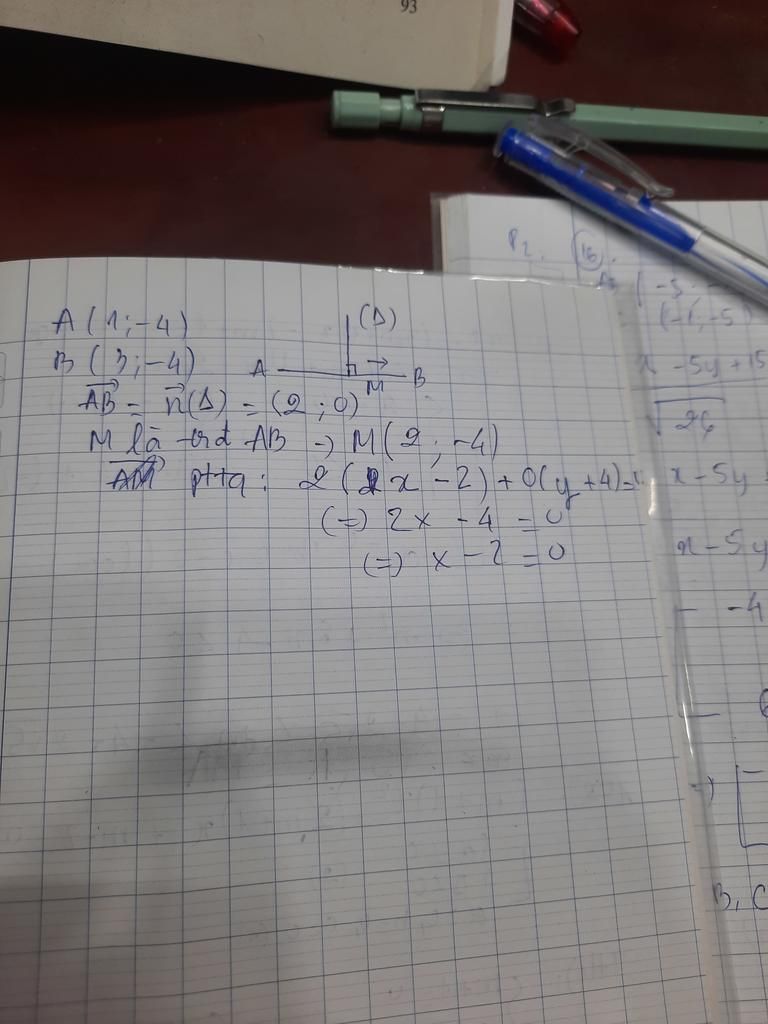 93
P2. 16.
A(1;-4)
(Δ)
B(3;-4)
A
M
B
AB = n(Δ) = (2;0)
M là trđ AB → M(2;-4)
AM pttq: 2(x-2)+0(y+4)=
(=) 2x - 4 = 0
(=) x - 2 = 0
(-1;-5)
x - 5y + 15
√26
x - 5y
x - 5y
- -4
B, C